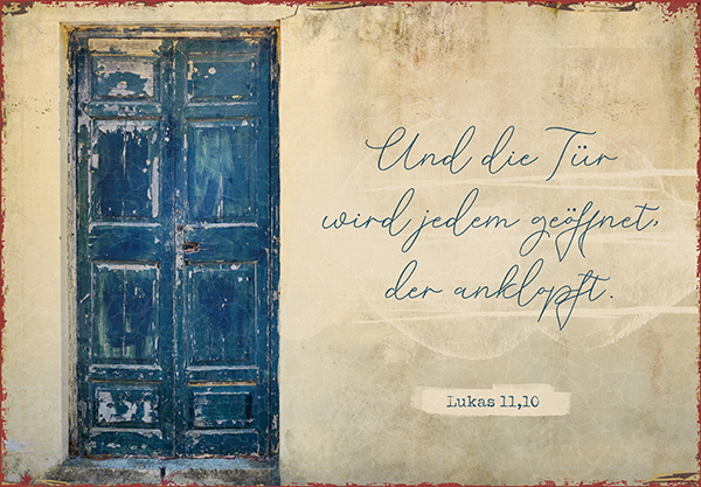 Und die Tür
wird jedem geöffnet,
der anklopft.
Lukas 11,10